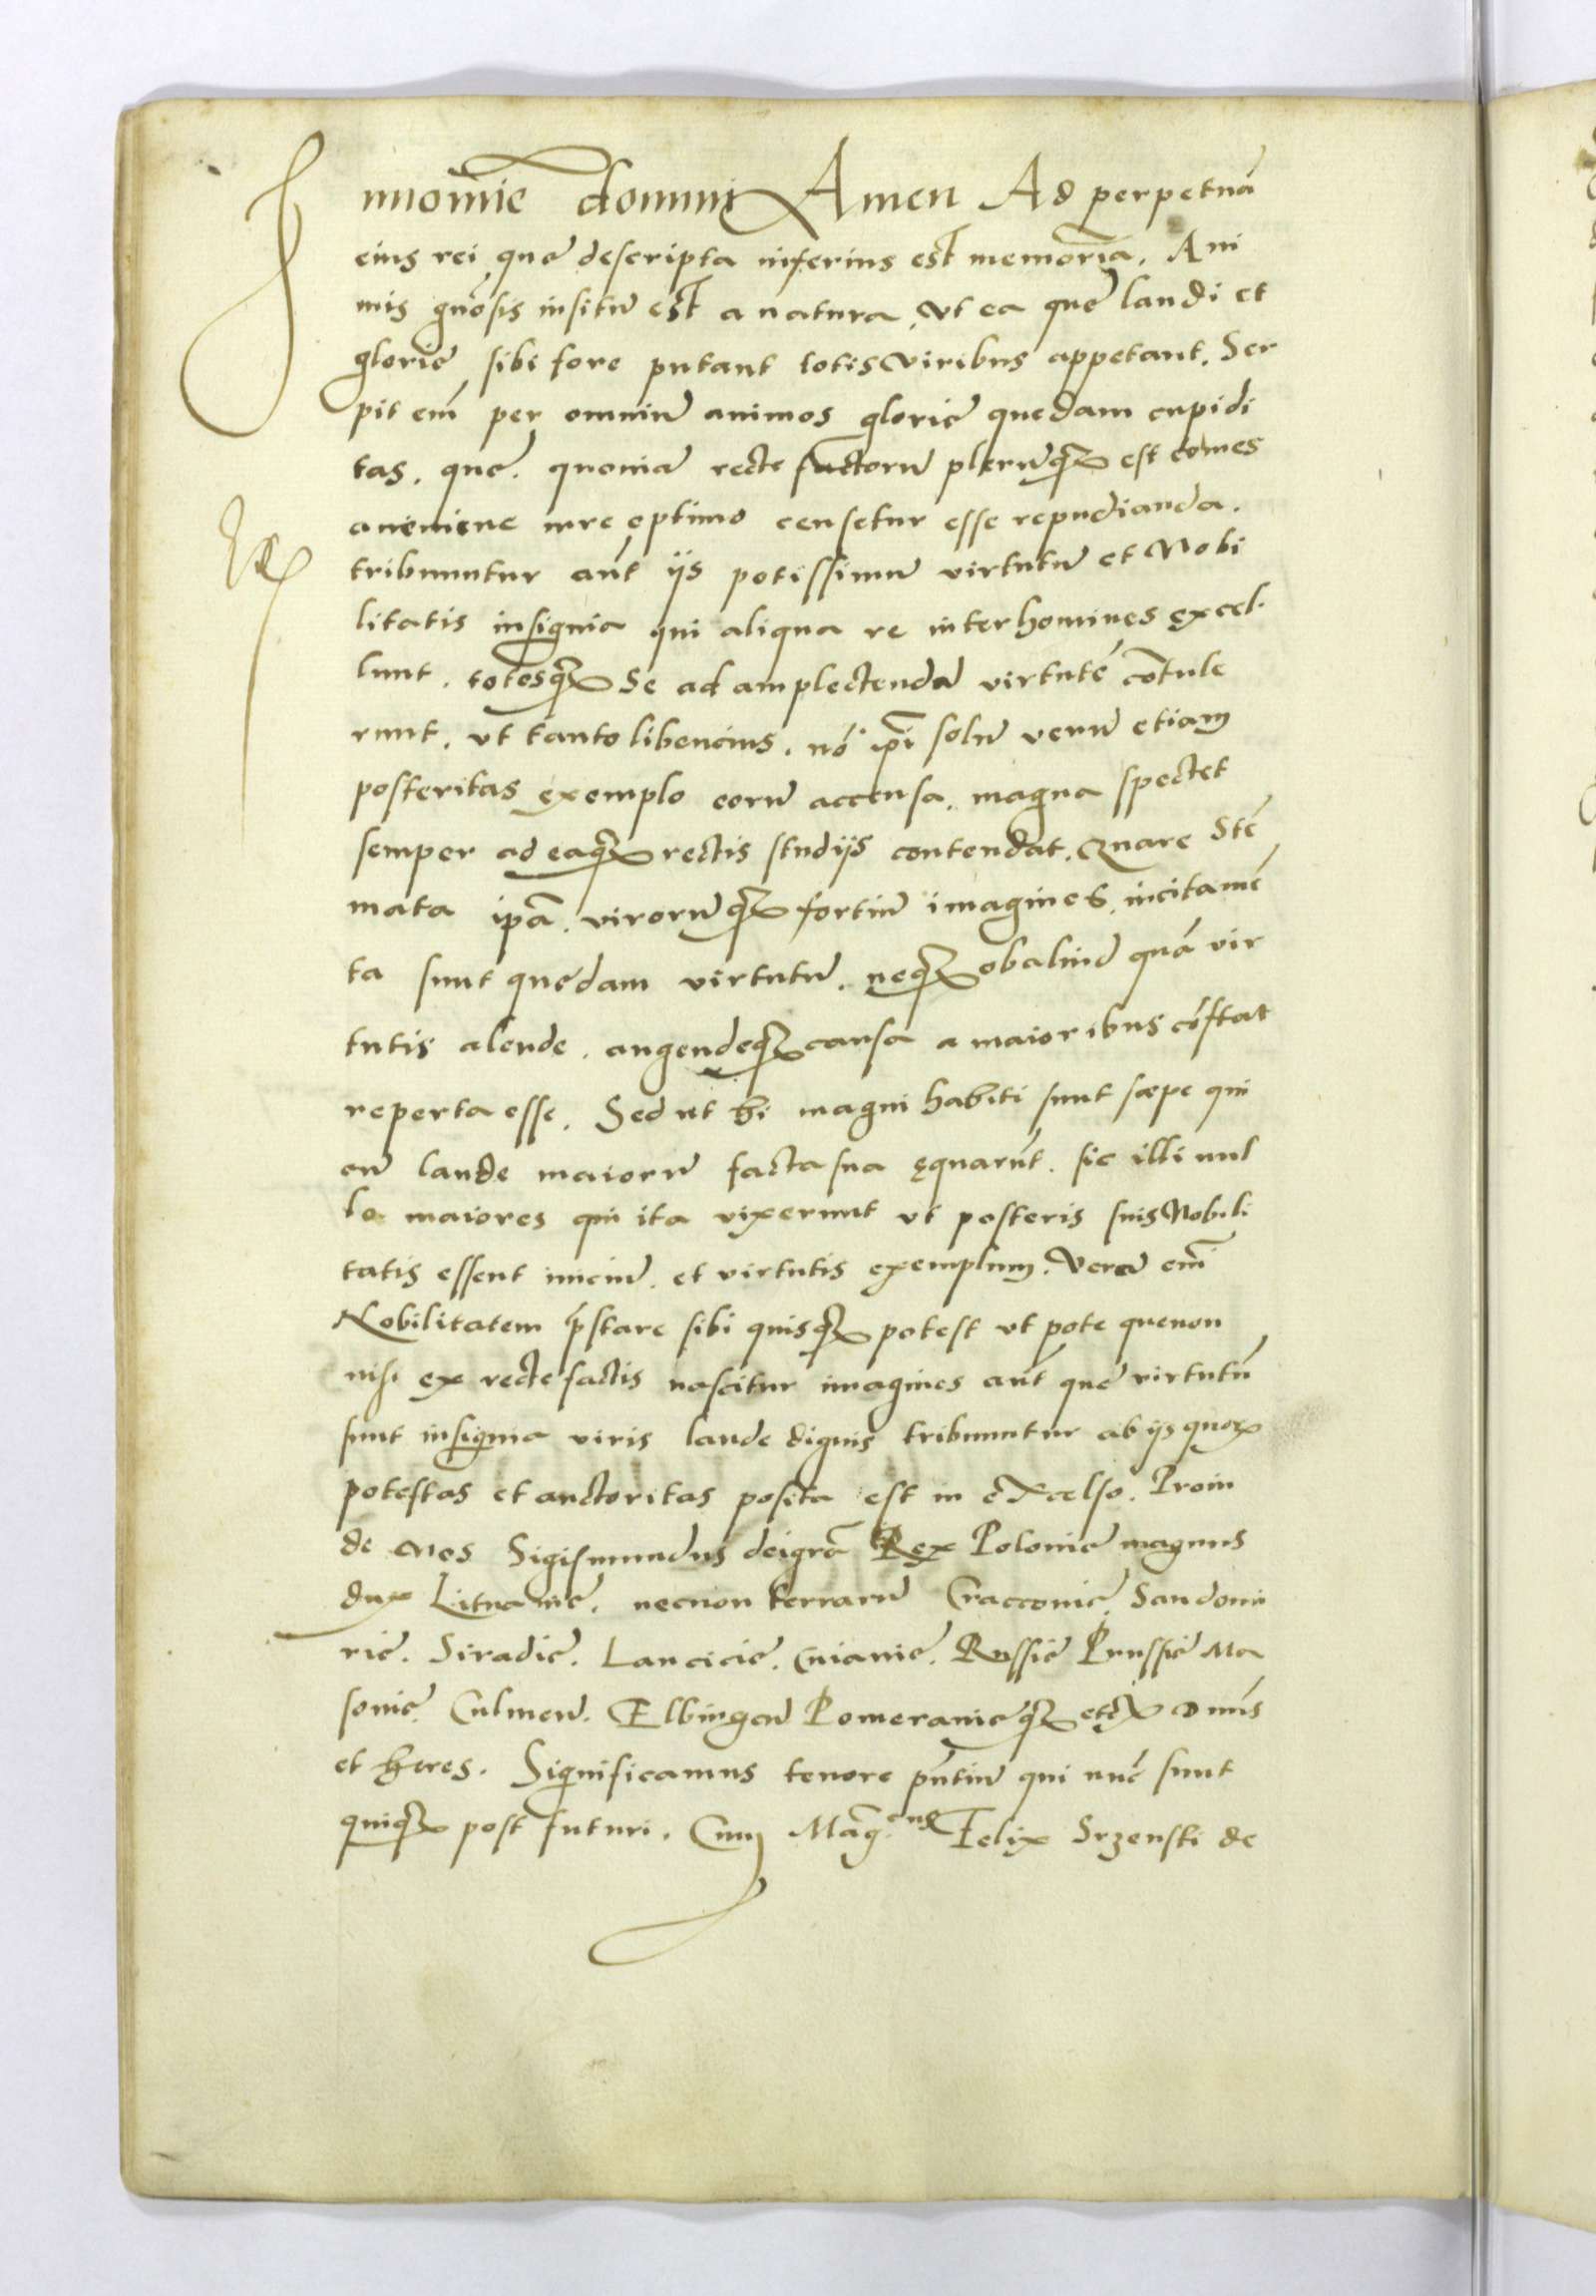 In nomīe domini Amen Ad perpetuā
eius rei que descripta inferius est memoriā. Ani
mis gn̄osis insitū est a natura, ut ea que laudi et
glorie sibi fore putant totis viribus appetant. Ser
pit em̄ per omniū animos glorie quedam cupidi
tas, que. quoniā recte factorū plerūq; est comes
a nemine iure optimo censetur esse repudianda.
tribuuntur aūt ijs potissimū virtutū et Nobi
litatis insignia qui aliqua re inter homines excel
lunt. totosq; se ad amplectendā virtutē cōtule
runt, ut tanto libencius. nō ip̄i solū verū etiam
posteritas exemplo eorū accensa. magna spectet
semper ad eaq; rectis studijs contendat. Quare Stē
mata ip̄a. virorūq; fortiū imagines, incitamē
ta sunt quedam virtutū. neq; ob aliud quā vir
tutis alende. augendeq; causa a maioribus cōstat
reperta esse. Sed ut hi magni habiti sunt sæpe qui
cū laude maiorū facta sua ęquarūt. sic illi mul
to maiores qui ita vixerunt ut posteris suis Nobili
tatis essent iniciū. et virtutis exemplum. Verā em̄
Nobilitatem p̄stare sibi quisq; potest ut pote que non
nisi ex recte factis nascitur imagines aūt que virtutū
sunt insignia viris laude dignis tribuuntur ab ijs quoꝝ
potestas et auctoritas posita est in excelso. Proin
de Nos Sigismundus dei grā Rex Polonie magnus
dux Lituanie. necnon terrarū Cracconie, Sandomi
rie. Siradie. Lancicie. Cuiauie. Russie Prussie Ma
souie, Culmen̄. Elbingen̄ Pomeranieq; etc̄ Dn̄us
et heres. Significamus tenore pn̄tiū qui nūc sunt
quiq; post futuri. Cum Mag.cus Felix Srzenski de